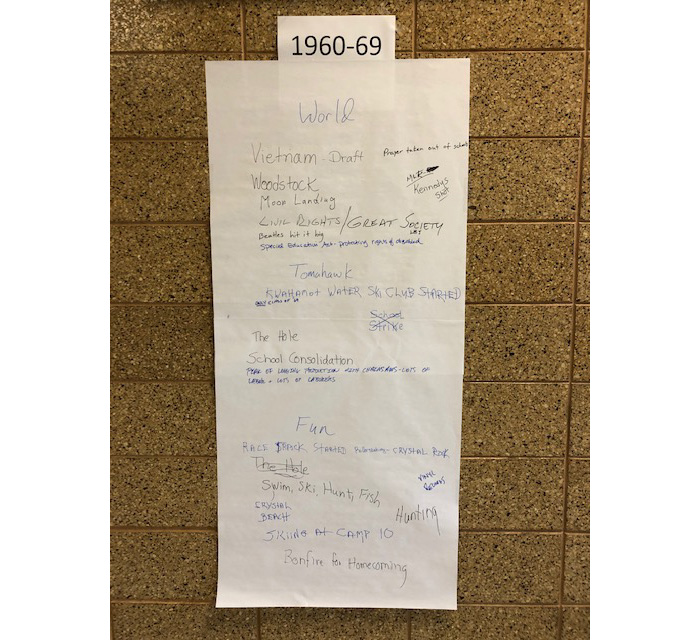 1960-69
World
Vietnam - Draft
Prayer taken out of school
Woodstock
MLK
Kennedys
Shot
Moon Landing
CIVIL RIGHTS/GREAT SOCIETY
LBJ
Beatles hit it big
Special Education Act - protecting rights of disabled
Tomahawk
KWAHAMOT WATER SKI CLUB STARTED
School
Strike
The Hole
School Consolidation
PEAK OF LOGGING PRODUCTION WITH CHAINSAWS - LOTS OF
LABOR - LOTS OF
Fun
RACE TRACK STARTED - CRYSTAL ROCK
The Hole
Swim, Ski, Hunt, Fish
CRYSTAL
BEACH
Hunting
SKIING AT CAMP 10
Bonfire for Homecoming